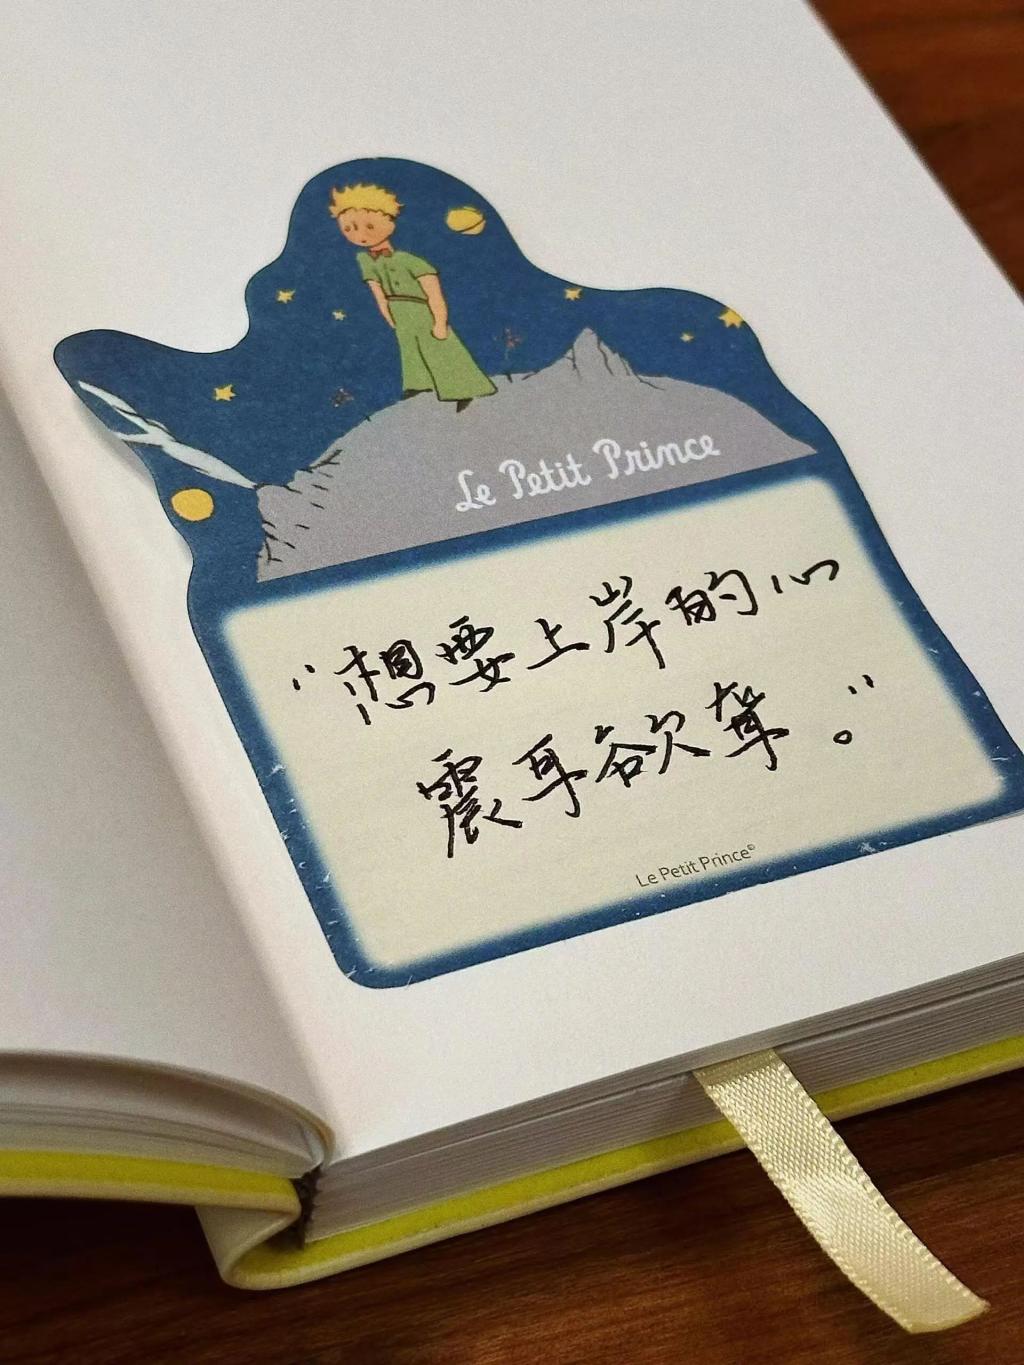 Le Petit Prince
“想要上岸的心
震耳欲聋。”
Le Petit Prince©